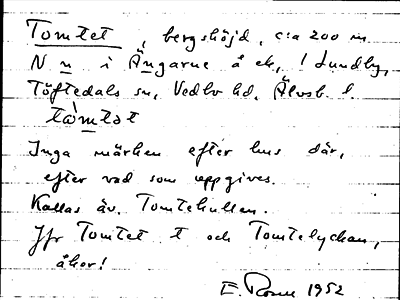 Tomtet, bergshöjd, c:a 200 m.
N n i Ängarne å ek, i Lundby,
Töftedals sn, Vedbo hd, Älvsb. l.
tòmtət
Inga märken efter hus där,
efter vad som uppgives.
Kallas äv. Tomtekullen.
Jfr Tomtet t och Tomtelyckan,
åkor!
E. Rosen 1952